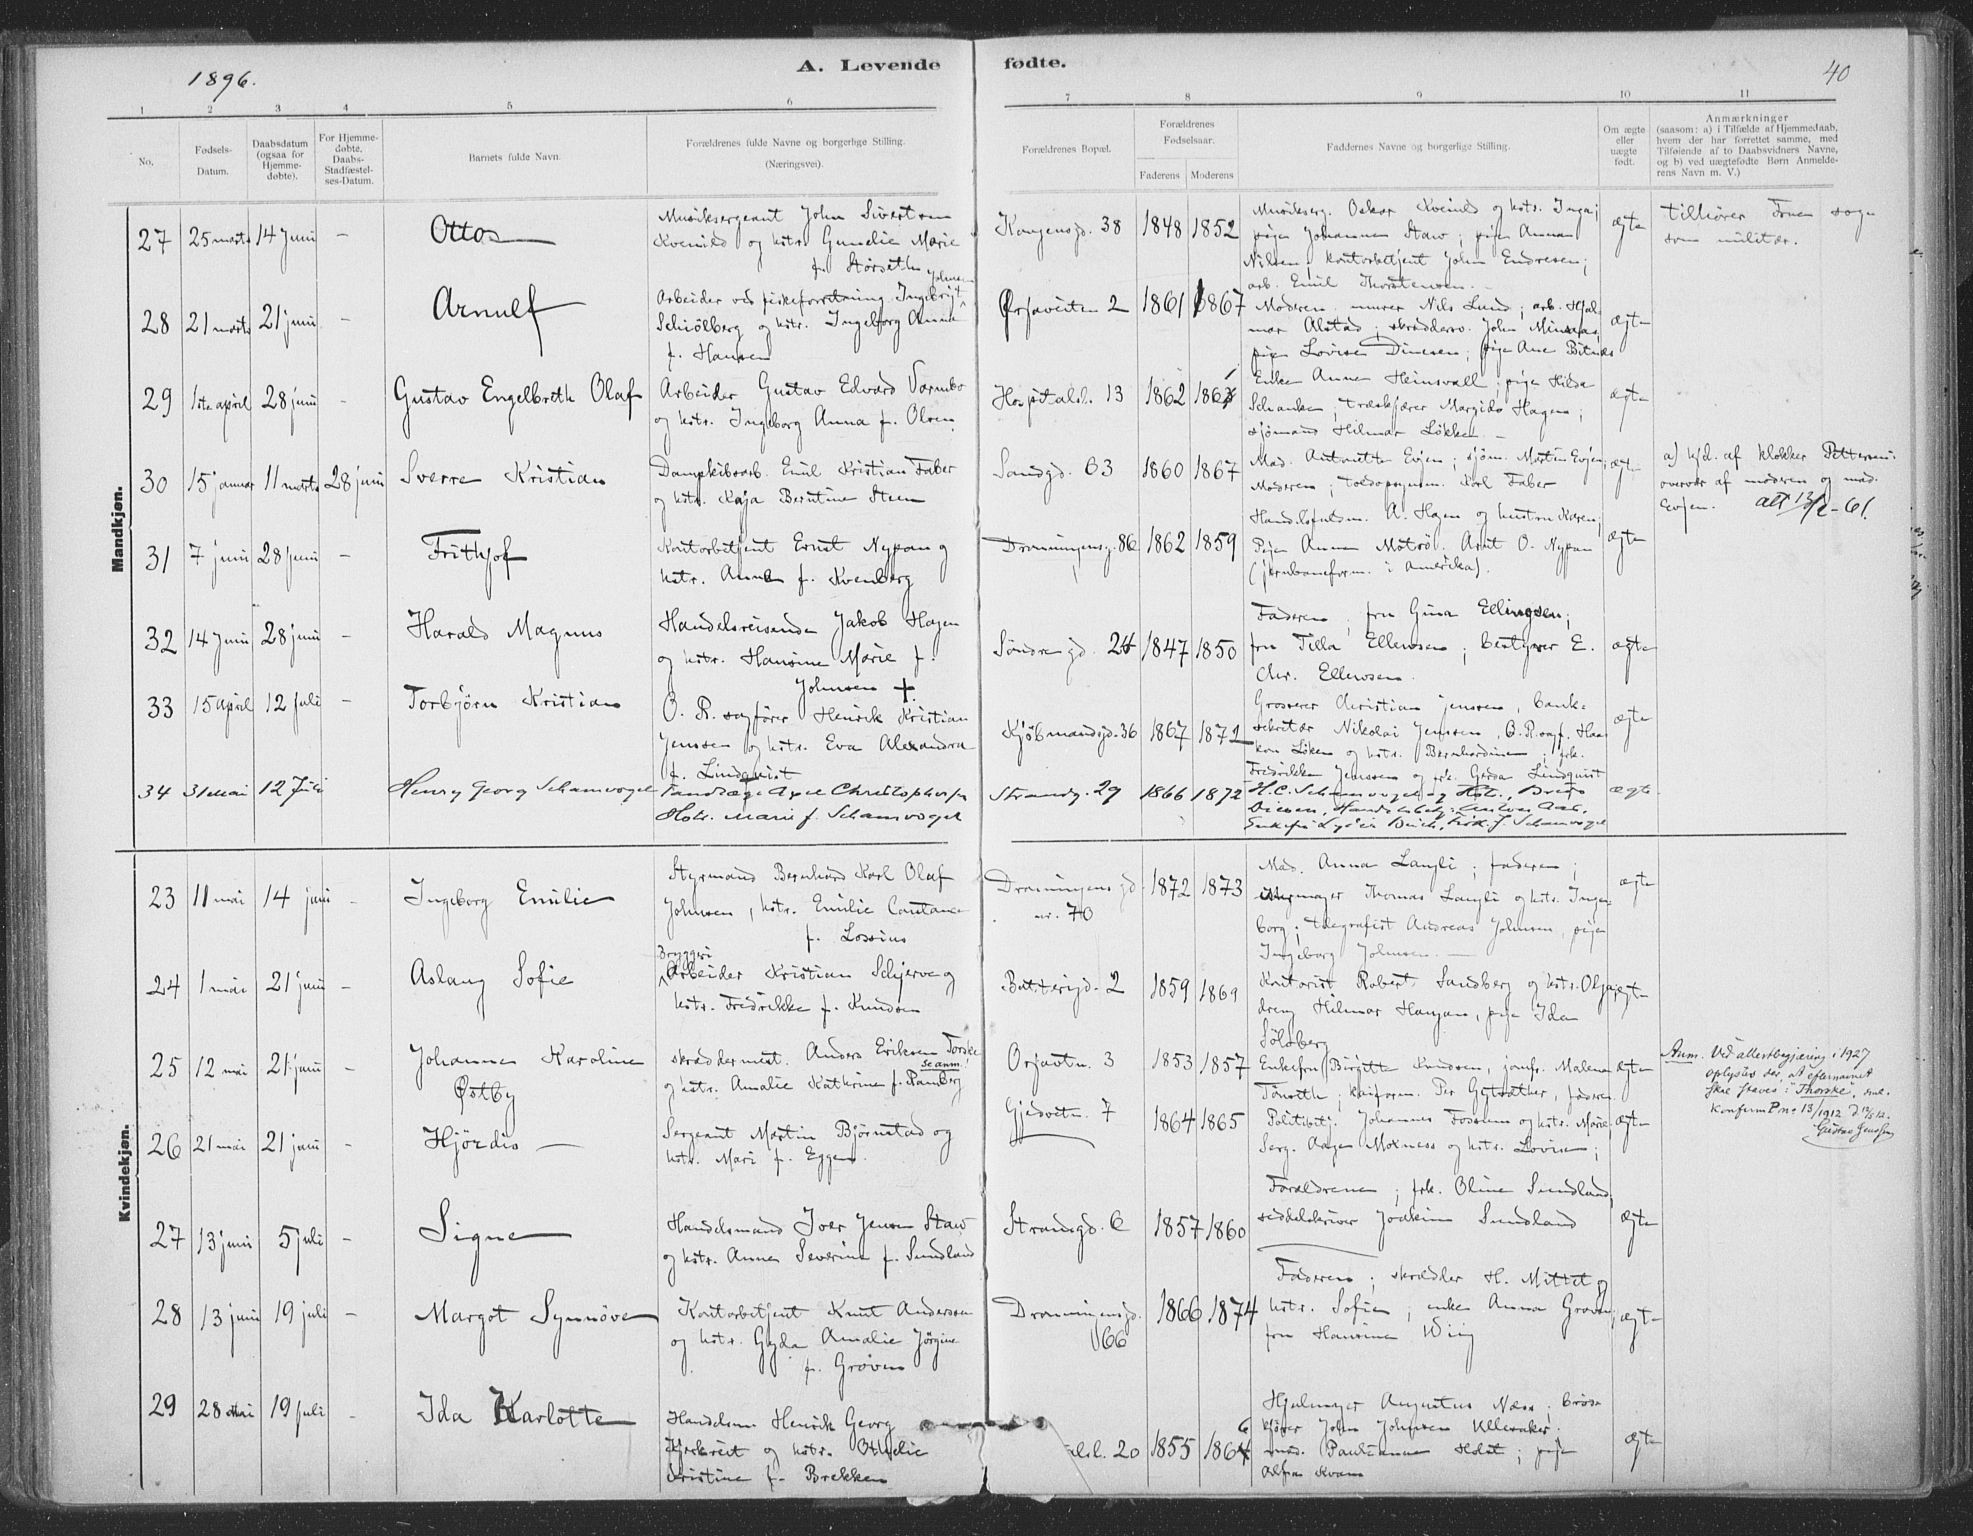 1896.
A. Levende fødte.
40
1 2 3 4 5 6 7 8 9 10 11
No.
Fødsels-
Datum.
Daabsdatum
(ogsaa for
Hjemme-
døbte).
For Hjemme-
døbte,
Daabs-
Stadfæstel-
ses-Datum.
Barnets fulde Navn.
Forældrenes fulde Navne og borgerlige Stilling.
(Næringsvei).
Forældrenes Bopæl.
Forældrenes
Fødselsaar.
Faderens Moderens
Faddernes Navne og borgerlige Stilling.
Om ægte
eller
uægte
født.
Anmærkninger
(saasom: a) i Tilfælde af Hjemmedaab,
hvem der har forrettet samme, med
Tilføiende af to Daabsvidners Navne,
og b) ved uægtefødte Børn Anmelde-
rens Navn m. V.)
Mandkjøn.
27 25 marts 14 juni - Otto
Musiksergeant John Sivertsen
Kveinild og hstr. Gunelie Marie
f. Störseth
Kongensgd. 38 1848 1852
Musikserg. Oskar Kveinild og hstr. Inga;
pige Johanna Staw; pige Anna
Nilsen; kontorbetjent John Endresen;
arb. Emil Thorstensen.
ægte
tilhører Frue sogn
som militær.
28 21 marts 21 juni - Arnulf
Arbeider ved fiskeforretning Ingebrigt Johnsen
Schiölberg og hstr. Ingeborg Anna
f. Hansen
Ørjaveiten 2 1861 1867
Moderen, murer Nils Lund; arb. Hjal-
mar Alstad; skrædder John Minsaas
pige Lovise Dinesen; pige Ane Bitnes
ægte
29 1ste april 28 juni - Gustav Engelbreth Olaf
Arbeider Gustav Edvard Varmbo
og hstr. Ingeborg Anna f. Olsen
Hospitalsl. 13 1862
Enke Anne Heinsvall; pige Hilda
Schanke; træskjærer Margido Hagen;
sjömand Hilmar Lökken
ægte
30 15 januar 11 marts 28 juni Sverre Kristian
Dampskibsarb. Emil Kristian Faber
og hstr. Kaja Berntine Steen
Sandgd. 63 1860 1867
Mad. Antonette Evjen; sjöm. Morten Evjen;
Moderen; Karl Faber
ægte
a) hjd. af klokker Pettersen
overvær af moderen og mad.
Evjen. att 13/2-61.
31 7 juni 28 juni - Frithjof
Kontorbetjent Ernst Nypan og
hstr. Anna f. Kvenberg
Dronningensg. 86 1862 1859
Handelsfuldm. A. Hagen og hustru Karen;
Pige Anna Motrö. Arnt O. Nypan
(jernbaneform. i Amerika).
ægte
32 14 juni 28 juni - Harald Magnus
Handelsreisende Jakob Hagen
og hstr. Hansine Marie f.
Johnsen +
Söndre gd. 24 1847 1850
Faderen, fru Gina Ellingsen;
fru Tilla Ellewsen; bestyrer E.
Chr. Ellewsen.
ægte
33 15 april 12 juli - Torbjörn Kristian
O. R. sagförer Henrik Kristian
Jenssen og hstr. Eva Alexandra
f. Lindquist
Kjöbmandsgd. 36 1867 1872
Grosserer Christian Jenssen, bank-
sekretær Nikolai Jenssen, O.R.sagf. Haa-
kon Löken og hstr. Bernhardine; frk.
Fredrikke Jenssen og frk. Gerda Lindquist
ægte
34 31 mai 12 Juli Henry Georg Schamvogel
Tandlæge Axel Christophersen
Hstr. Marie f. Schamvogel
Strandg. 29 1866 1872
H.C. Schamvogel og Hstr.,
ægte
Kvindekjøn.
23 11 mai 14 juni - Ingeborg Emilie
Styrmand Bernhard Karl Olaf
Johnsen, hstr. Emilie Constance
f. Lossius
Dronningens gd.
nr. 70
1872 1873
Mad. Anna Langli; faderen;
Thomas Langli og hstr. Inge-
borg; telegrafist Andreas Johnsen, pige
Ingeborg Johnsen.
ægte
24 1 mai 21 juni - Aslaug Sofie
Bryggeri
Arbeider Kristian Schjerve og
hstr. Fredrikke f. Knudsen
Batterigd. 2 1859 1869
Kontorist Robert Sandberg og hstr. Olga,
dreng Hilmar Haugan, pige Ida
Sölsberg
ægte
25 12 mai 21 juni Johanne Karoline
Østby
skræddermest. Anders Eriksen Torske
se anm.
og hstr. Amalie Kathrine f. Ramberg
Orjavtn. 3 1853 1857
Enkefru Birgitte Knudsen, jomfr. Malena
Tönseth; Per Gytsæther, faderen
ægte
Anm. Ved attestbegjæring i 1927
oplystes det, at efternavnet
skal staves: "Thorske", sml.
konferm P no 13/1912 D 12/5 12.
Gustav Jenssen
26 21 mai 21 juni - Hjördis
Sergeant Martin Björnstad og
hstr. Mari f. Eggen.
Gjedvetn. 7 1864 1865
Politibtj. Johannes Fossum og hstr. Marie,
Serg. Aage Moxness og hstr. Lovise;
ægte
27 13 juni 5 juli - Signe
Handelsmand Iver Jensen Staw
og hstr. Anna Severine f. Sundland
Strandgd. 6 1857 1860
Forældrene; frk. Oline Sundland,
seddelskriver Joakim Sundland
ægte
28 13 juni 19 juli - Margot Synnöve
Kontorbetjent Knut Andersen
og hstr. Gyda Amalie Jörgine
f. Gröven
Dronningensgd.
66
1866 1874
Faderen; skrædder H. Mittet og
hstr. Sofie; enke Anna Gröven;
fru Hansine Wiig
ægte
29 28 mai 19 juli - Ida Karlotte
Handelsm Henrik Georg
Kjerkreit og hstr. Othelie
Kristine f. Brekken
20 1855
Hjulmager Augustus Næss; bröd-
kjörer John Johnsen Ullensaker;
mad. Pauline Holst; pige
Alfa Kvam
ægte